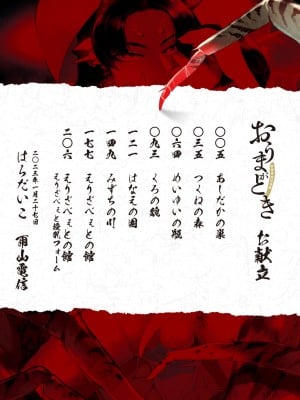 おりまがとき
お献立
〇〇五 あしだかの巣
〇三五 つくねの森
〇六四 めいゆいの版
〇九三 くろの貌
一二一 はなえの園
一四九 みずちの川
一七七 えりざべぇとの館
二〇六 えりざべぇとの館
えりざべぇと授乳フォーム
二〇二三年一月二十七日
はらだいこ 雨山電信